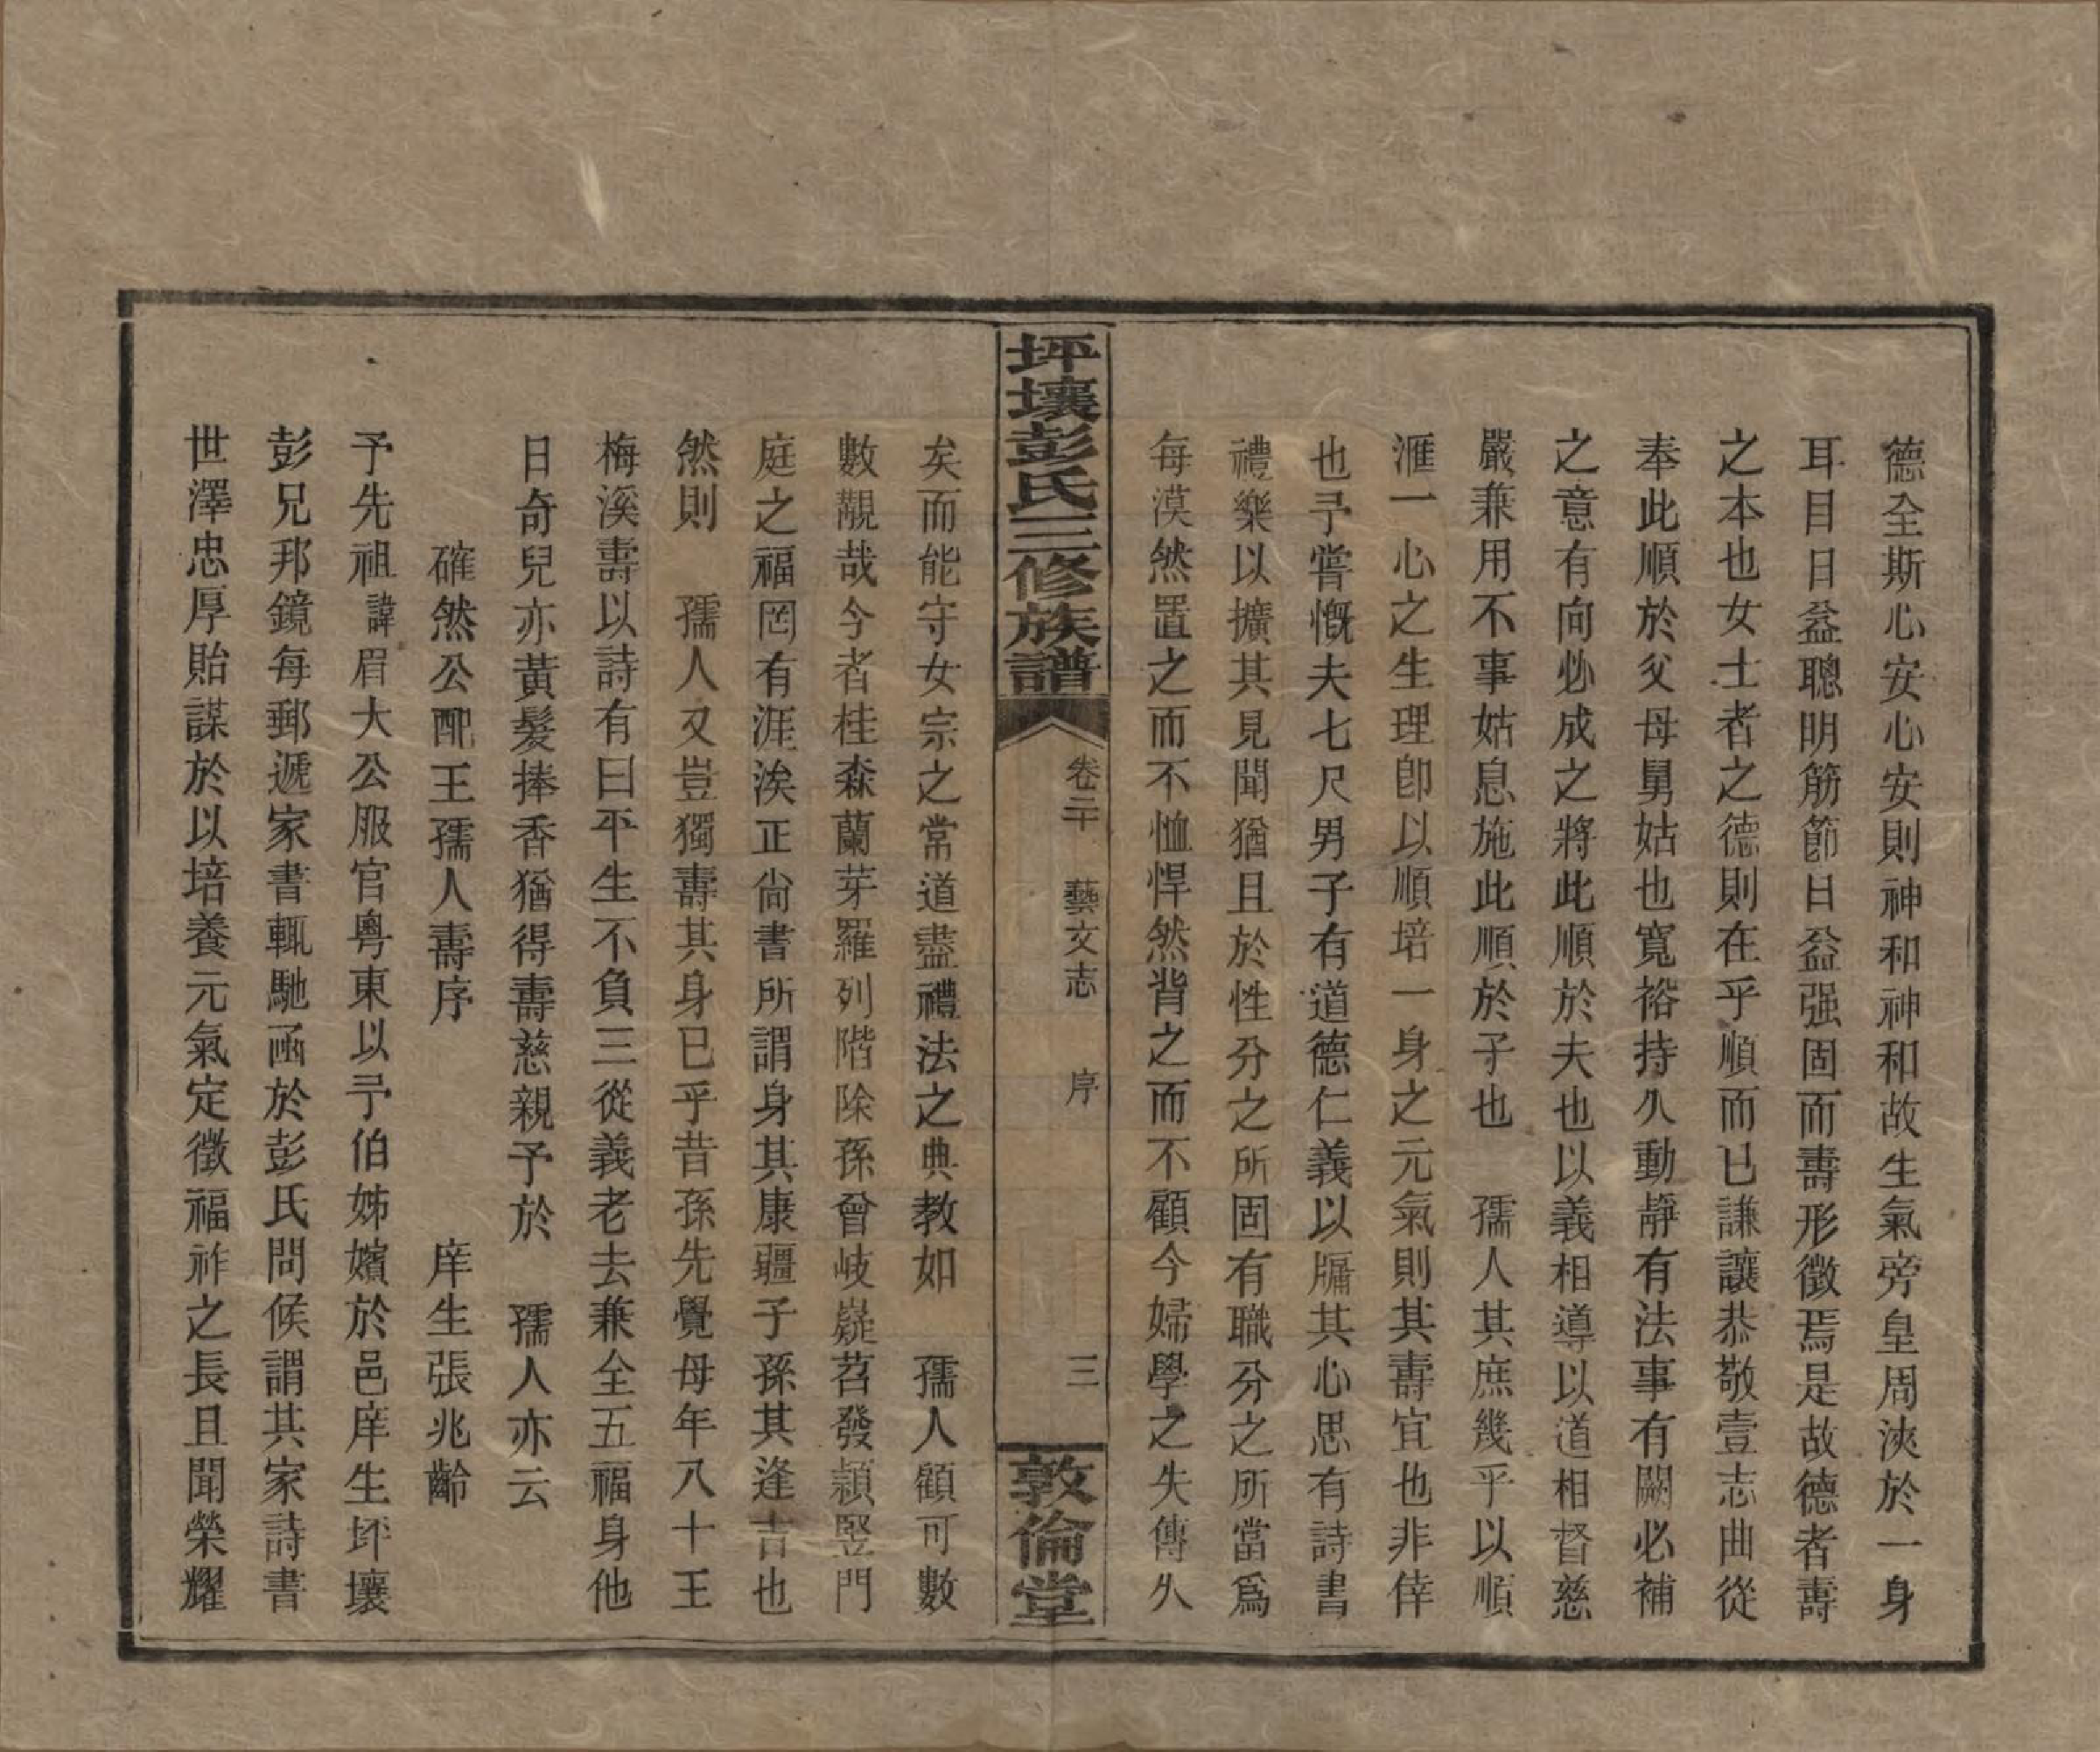 德全斯心安心安則神和神和故生氣旁皇周浹於一身
耳目日益聰明筋節日益强固而壽形徵焉是故德者壽
之本也女士者之德則在乎順而已謙讓恭敬壹志曲從
奉此順於父母舅姑也寬裕持久動靜有法事有闕必補
之意有向必成之將此順於夫也以義相導以道相督慈
嚴兼用不事姑息施此順於子也　孺人其庶幾乎以順
滙一心之生理卽以順培一身之元氣則其壽宜也非倖
也予嘗慨夫七尺男子有道德仁義以牖其心思有詩書
禮樂以擴其見聞猶且於性分之所固有職分之所當爲
每漠然置之而不恤悍然背之而不顧今婦學之失傳久
坪壤彭氏三修族譜
卷二十　藝文志　序　三
敦倫堂
矣而能守女宗之常道盡禮法之典教如　孺人顧可數
數覯哉今者桂森蘭芽羅列階除孫曾岐嶷苕發穎竪門
庭之福罔有涯涘正尙書所謂身其康疆子孫其逢吉也
然則　孺人又豈獨壽其身已乎昔孫先覺母年八十王
梅溪壽以詩有曰平生不負三從義老去兼全五福身他
日奇兒亦黃髮捧香猶得壽慈親予於　孺人亦云
確然公配王孺人壽序　庠生張兆齡
予先祖諱眉大公服官粵東以予伯姊嬪於邑庠生坪壤
彭兄邦鏡每郵遞家書輒馳函於彭氏問候謂其家詩書
世澤忠厚貽謀於以培養元氣定徵福祚之長且聞榮耀